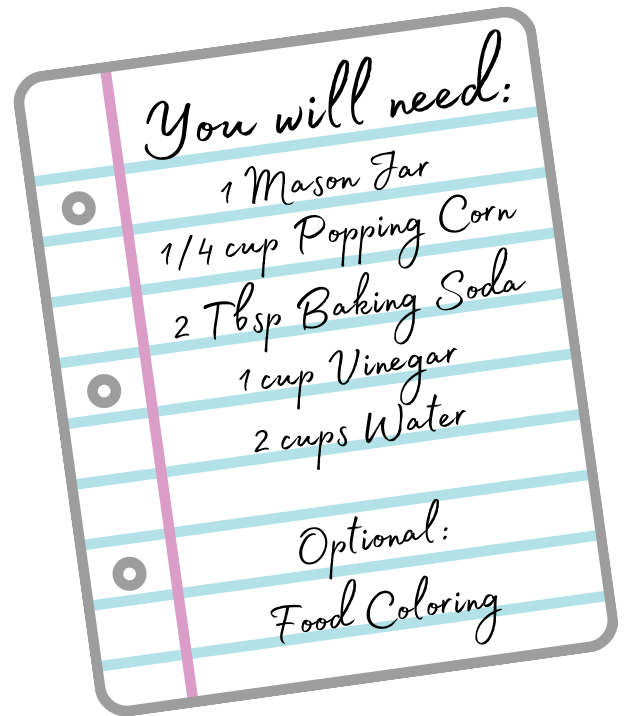 You will need:
1 Mason Jar
1/4 cup Popping Corn
2 Tbsp Baking Soda
1 cup Vinegar
2 cups Water
Optional:
Food Coloring